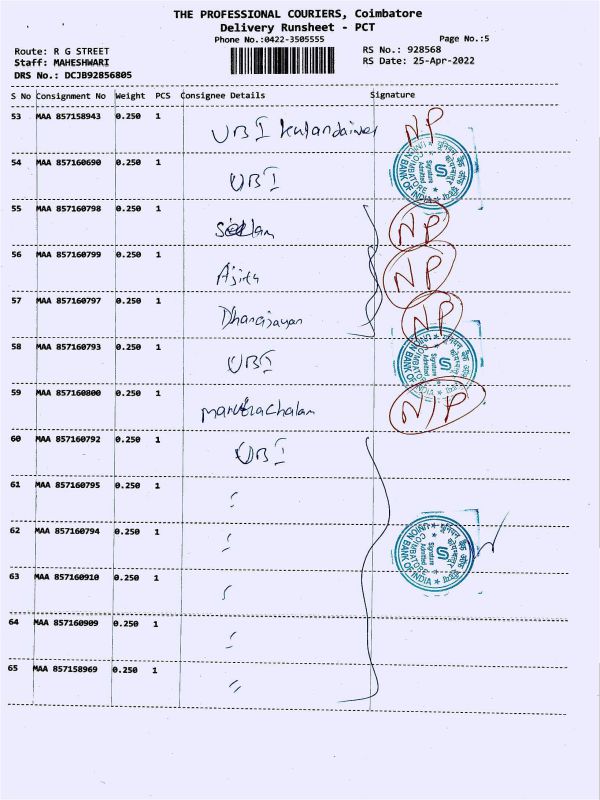 THE PROFESSIONAL COURIERS, Coimbatore
Delivery Runsheet - PCT
Phone No.:0422-3505555 Page No.:5
Route: R G STREET RS No.: 928568
Staff: MAHESHWARI RS Date: 25-Apr-2022
DRS No.: DCJB92856805
S No Consignment No Weight PCS Consignee Details Signature
53 MAA 857158943 0.250 1 UBI NP
54 MAA 857160690 0.250 1 UBI
UNION BANK OF INDIA COIMBATORE Signature Admitted
55 MAA 857160798 0.250 1 NP
56 MAA 857160799 0.250 1 Ajith NP
57 MAA 857160797 0.250 1 Dhanajayan NP
58 MAA 857160793 0.250 1 UBI
UNION BANK OF INDIA COIMBATORE Signature Admitted
59 MAA 857160800 0.250 1 maruthachalam N/P
60 MAA 857160792 0.250 1 UBI
61 MAA 857160795 0.250 1 "
62 MAA 857160794 0.250 1 "
UNION BANK OF INDIA COIMBATORE Signature Admitted
63 MAA 857160910 0.250 1
64 MAA 857160909 0.250 1 "
65 MAA 857158969 0.250 1 "